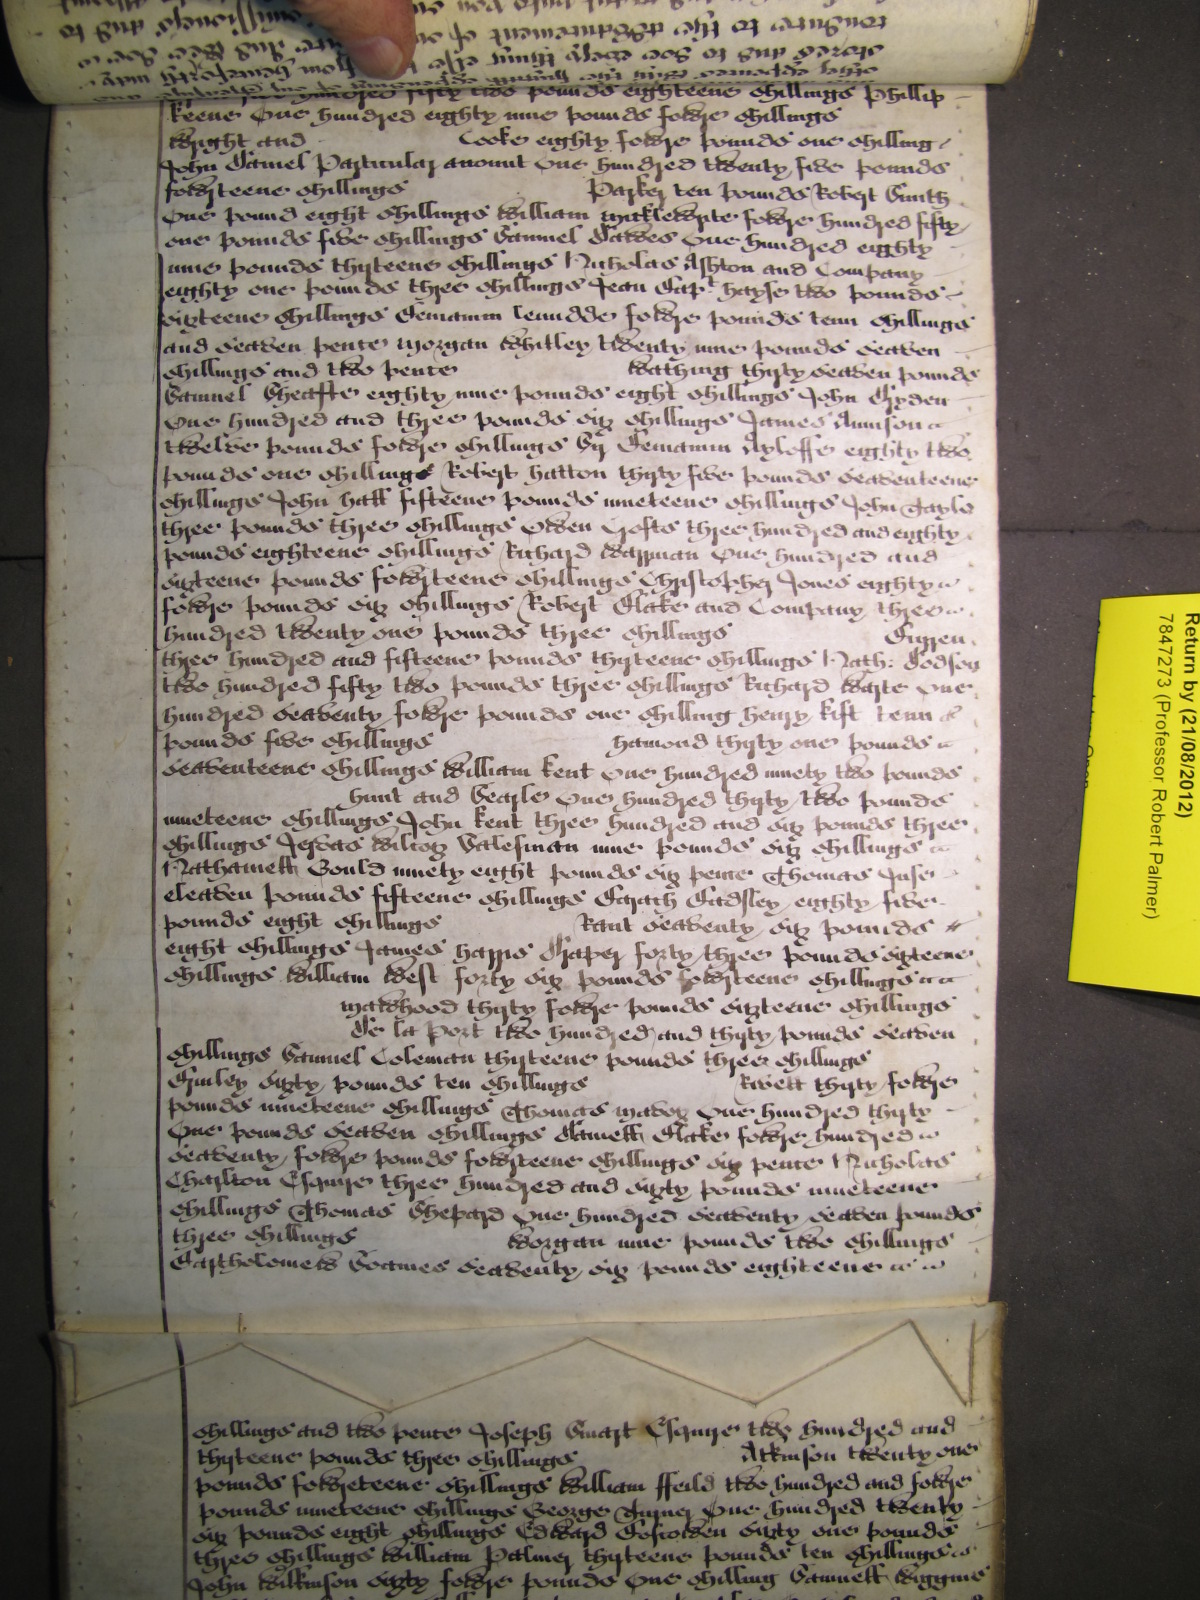 hundred fifty two pounds eighteene shillings Phillip
Keene One hundred eighty nine pounds fowre shillings
Wright and Cooke eighty fowre pounds one shilling
John Daniel Particular amount One hundred twenty five pounds
fowrteene shillings Parker ten pounds Robert Smith
One pound eight shillings William Micklewrite fowre hundred fifty
one pounds five shillings Samuel Dawes One hundred eighty
nine pounds thirteene shillings Nicholas Ashton and Company
eighty one pounds three shillings Jean Bapt. hayse two pounds
sixteene shillings Beniamin Lenudde fowre pounds tenn shillings
and seaven pence Morgan Whitley twenty nine pounds seaven
shillings and two pence Wathing thirty seaven pounds
Samuel Sheafte eighty nine pounds eight shillings John Dryden
One hundred and three pounds six shillings James Annison
twelve pounds fowre shillings Sr Beniamin Ayloffe eighty two
pounds one shillings Robert hatton thirty five pounds seaventeene
shillings John hall fifteene pounds nineteene shillings John Tayle
three pounds three shillings Owen Crofts three hundred and eighty
pounds eighteene shillings Richard Warrman One hundred and
sixteene pounds fowrteene shillings Christopher Jones eighty
fowre pounds six shillings Robert Blake and Company three
hundred twenty one pounds three shillings Burren
three hundred and fifteene pounds thirteene shillings Nath: Dodson
two hundred fifty two pounds three shillings Richard Warte One
hundred seaventy fowre pounds one shilling henry kift tenn
pounds five shillings hamond thirty one pounds
seaventeene shillings William Kent One hundred ninety two pounds
hunt and Searle One hundred thirty two pounds
nineteene shillings John Kent three hundred and six pounds three
shillings Jervas Wilcox Salesman nine pounds six shillings
Nathaniell Gould ninety eight pounds six pence Thomas
eleaven pounds fifteene shillings Sarath Badsley eighty five
pounds eight shillings Rant seaventy six pounds
eight shillings James harris Draper forty three pounds sixteene
shillings William West forty six pounds fowrteene shillings
Mawhood thirty fowre pounds sixteene shillings
De la Port two hundred and thirty pounds seaven
shillings Samuel Coleman thirteene pounds three shillings
Brinley sixty pounds ten shillings Rivett thirty fowre
pounds nineteene shillings Thomas Mavor One hundred thirty
One pounds seaven shillings Daniell Blake fowre hundred
seaventy fowre pounds fowrteene shillings six pence Nicholas
Charlton Esquire three hundred and sixty pounds nineteene
shillings Thomas Shepard One hundred seaventy seaven pounds
three shillings Worgan nine pounds two shillings
Bartholomew Soames seaventy six pounds eighteene
shillings and two pence Joseph Smart Esquire two hundred and
thirteene pounds three shillings Atkinson twenty one
pounds fowreteene shillings William ffeild two hundred and fowre
pounds nineteene shillings George Turner One hundred twenty
six pounds eight shillings Edward Boscowen sixty one pounds
three shillings William Palmer thirteene pounds ten shillings
John Wilkinson sixty fowre pounds One shilling Samuell Wiggins
Return by (21/08/2012)
7847273 (Professor Robert Palmer)